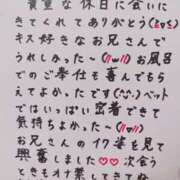 貴重な休日に会いに
きてくれてありがとう(≧▽≦)
キス好きなお兄さんで
うれしかった〜(〃ω〃)お風呂
でのご奉仕も喜んでも
らえてよかった(≧▽≦)ベット
ではいっぱい密着できて
気持ちよかった〜(〃ω〃)
お兄さんのイク姿を見て
興奮しました♡♡次会う
ときもオナ禁してきてね